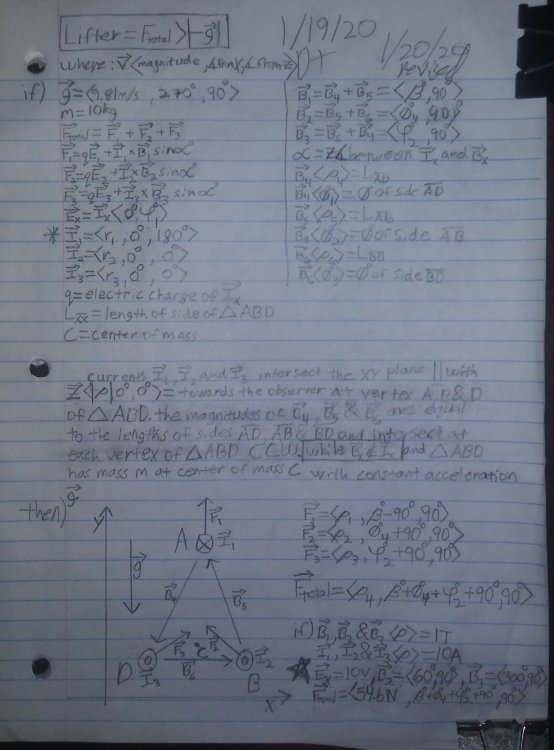 Lifter = F⃗total > |-g⃗|
1/19/20
where: ∇⃗<magnitude, from z>
DT
1/20/20
revised
if) g⃗=<9.81m/s, 270°, 90°>
m=10kg
F⃗total = F⃗1 + F⃗2 + F⃗3
F⃗1=qE⃗1+I⃗1×B⃗1 sinα°
F⃗2=qE⃗2+I⃗2×B⃗2 sinα°
F⃗3=qE⃗3+I⃗3×B⃗3 sinα°
E⃗x=I⃗x
* I⃗1=<r1, 0°, 180°>
I⃗2=<r2, 0°, 0°>
I⃗3=<r3, 0°, 0°>
q=electric charge of I⃗x
Lxx=length of side of △ABD
C=center of mass
B⃗1=B⃗4+B⃗5=<β°, 90°>
B⃗2=B⃗5+B⃗6=<ϕ4°, 90°>
B⃗3=B⃗6+B⃗4=<φ2°, 90°>
α=∠ between I⃗x and B⃗x
B⃗4<ρ1>=LAD
B⃗4<ϕ1>=ϕ of side AD
B⃗5<ρ2>=LAB
B⃗5<ϕ2>=ϕ of side AB
B⃗6<ρ3>=LBD
B⃗6<ϕ3>=ϕ of side BD
currents I⃗1, I⃗2 and I⃗3 intersect the xy plane || with
Z⃗<ρ|0°, 0°>=towards the observer at vertex A, B & D
of △ABD. the magnitudes of B⃗4, B⃗5 & B⃗6 are equal
to the lengths of sides AD, AB & BD and intersect at
each vertex of △ABD CCW, while and △ABD
has mass m at center of mass C with constant acceleration
g⃗
then)
y
g⃗
F⃗1
A I⃗1
B⃗4
B⃗5
F⃗3 C F⃗2
D I⃗3
B⃗6
B I⃗2
x
F⃗1=<ρ1, β-90°, 90°>
F⃗2=<ρ2, ϕ4+90°, 90°>
F⃗3=<ρ3, φ2+90°, 90°>
F⃗total=<ρ4, β°+ϕ4+φ2+90°, 90°>
if) B⃗1, B⃗2 & B⃗3<ρ>=1T
I⃗1, I⃗2 & I⃗3<ρ>=10A
E⃗x=10V, B⃗2=<60°, 90°>, B⃗3=<300°, 90°>
F⃗total=<546N, β+ϕ4+φ2+90°, 90°>